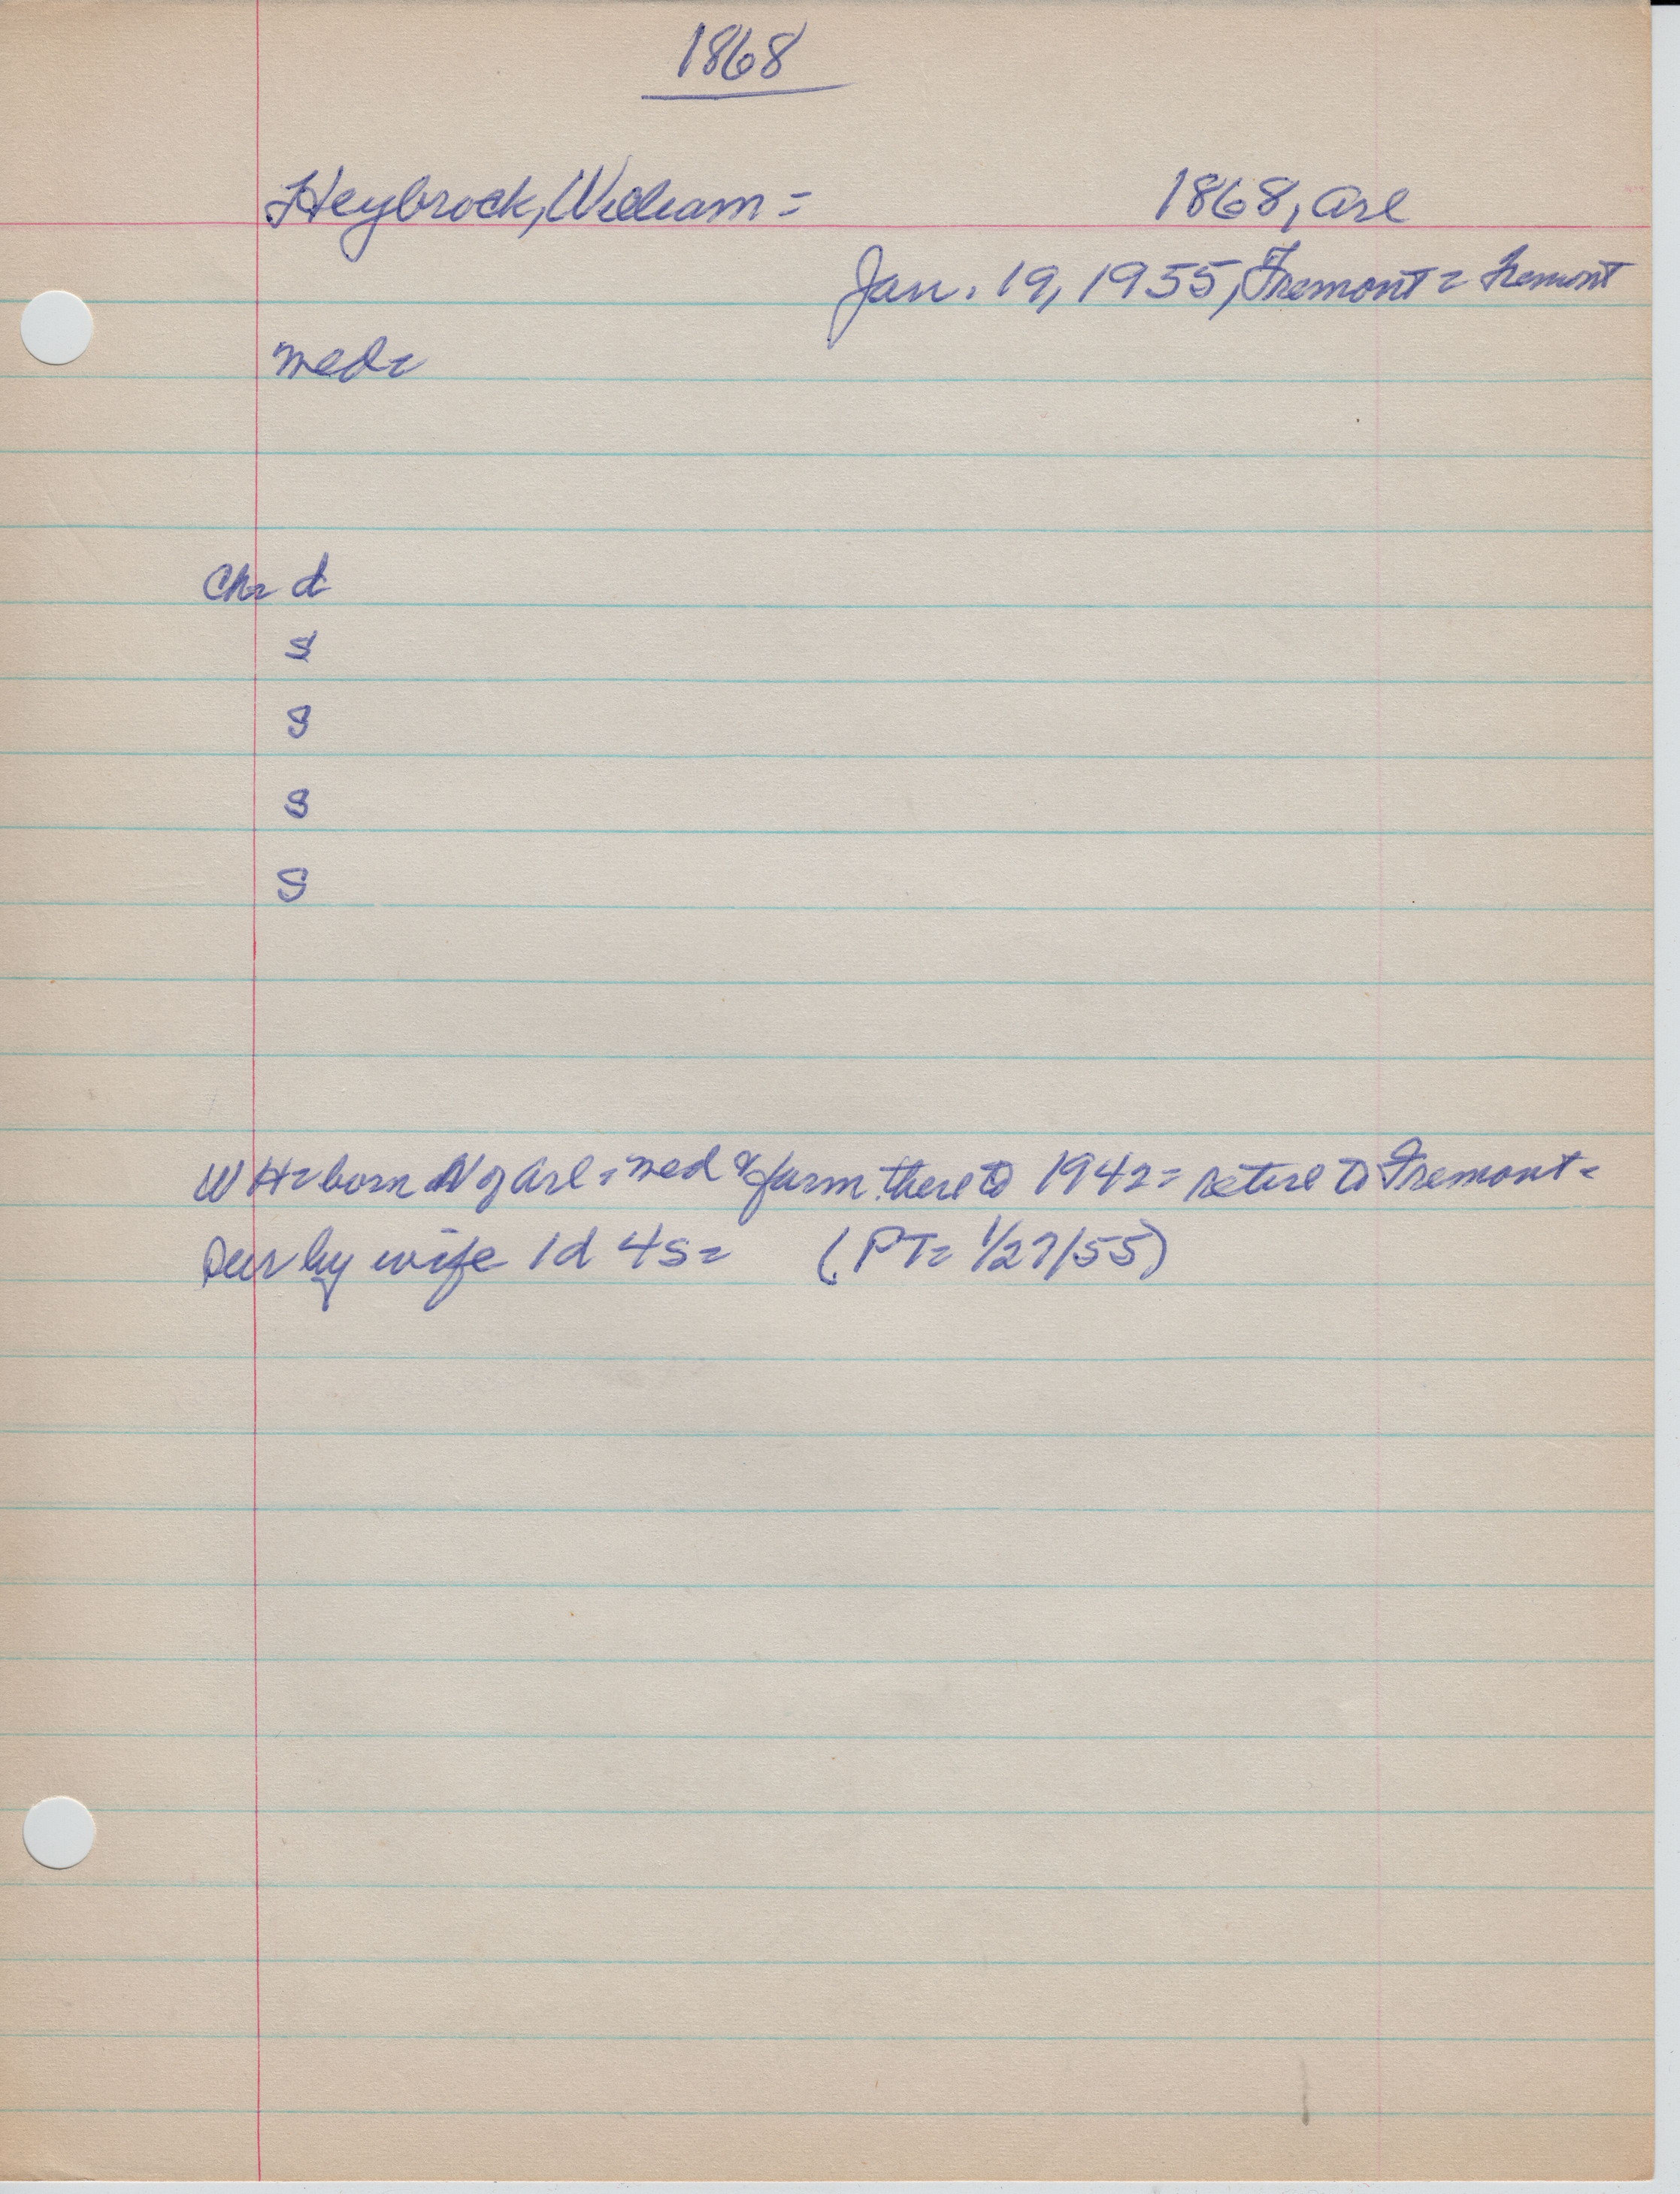 1868
Heybrock, William = 1868, Arl
Jan. 19, 1955, Fremont = Fremont
med=
Ch= d
s
s
s
s
WH= born N of Arl = med & farm there to 1942 = retire to Fremont =
Sur by wife 1d 4s= (PT= 1/27/55)